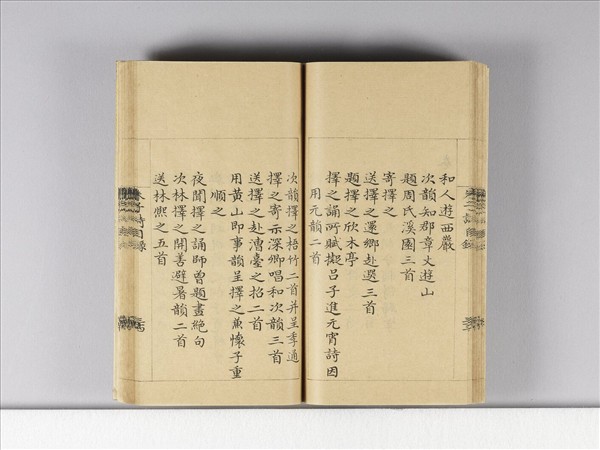 和人遊西巖
次韻知郡章丈遊山
題周氏溪園三首
寄擇之
送擇之還鄉赴選三首
題擇之欣木亭
擇之誦所賦擬呂子進元宵詩因
用元韻二首
次韻擇之梧竹二首并呈季通
擇之寄示深卿唱和次韻三首
送擇之赴漕臺之招二首
用黃山即事韻呈擇之兼懷子重
順之
夜聞擇之誦師曾題畫絕句
次林擇之開善避暑韻二首
送林熙之五首